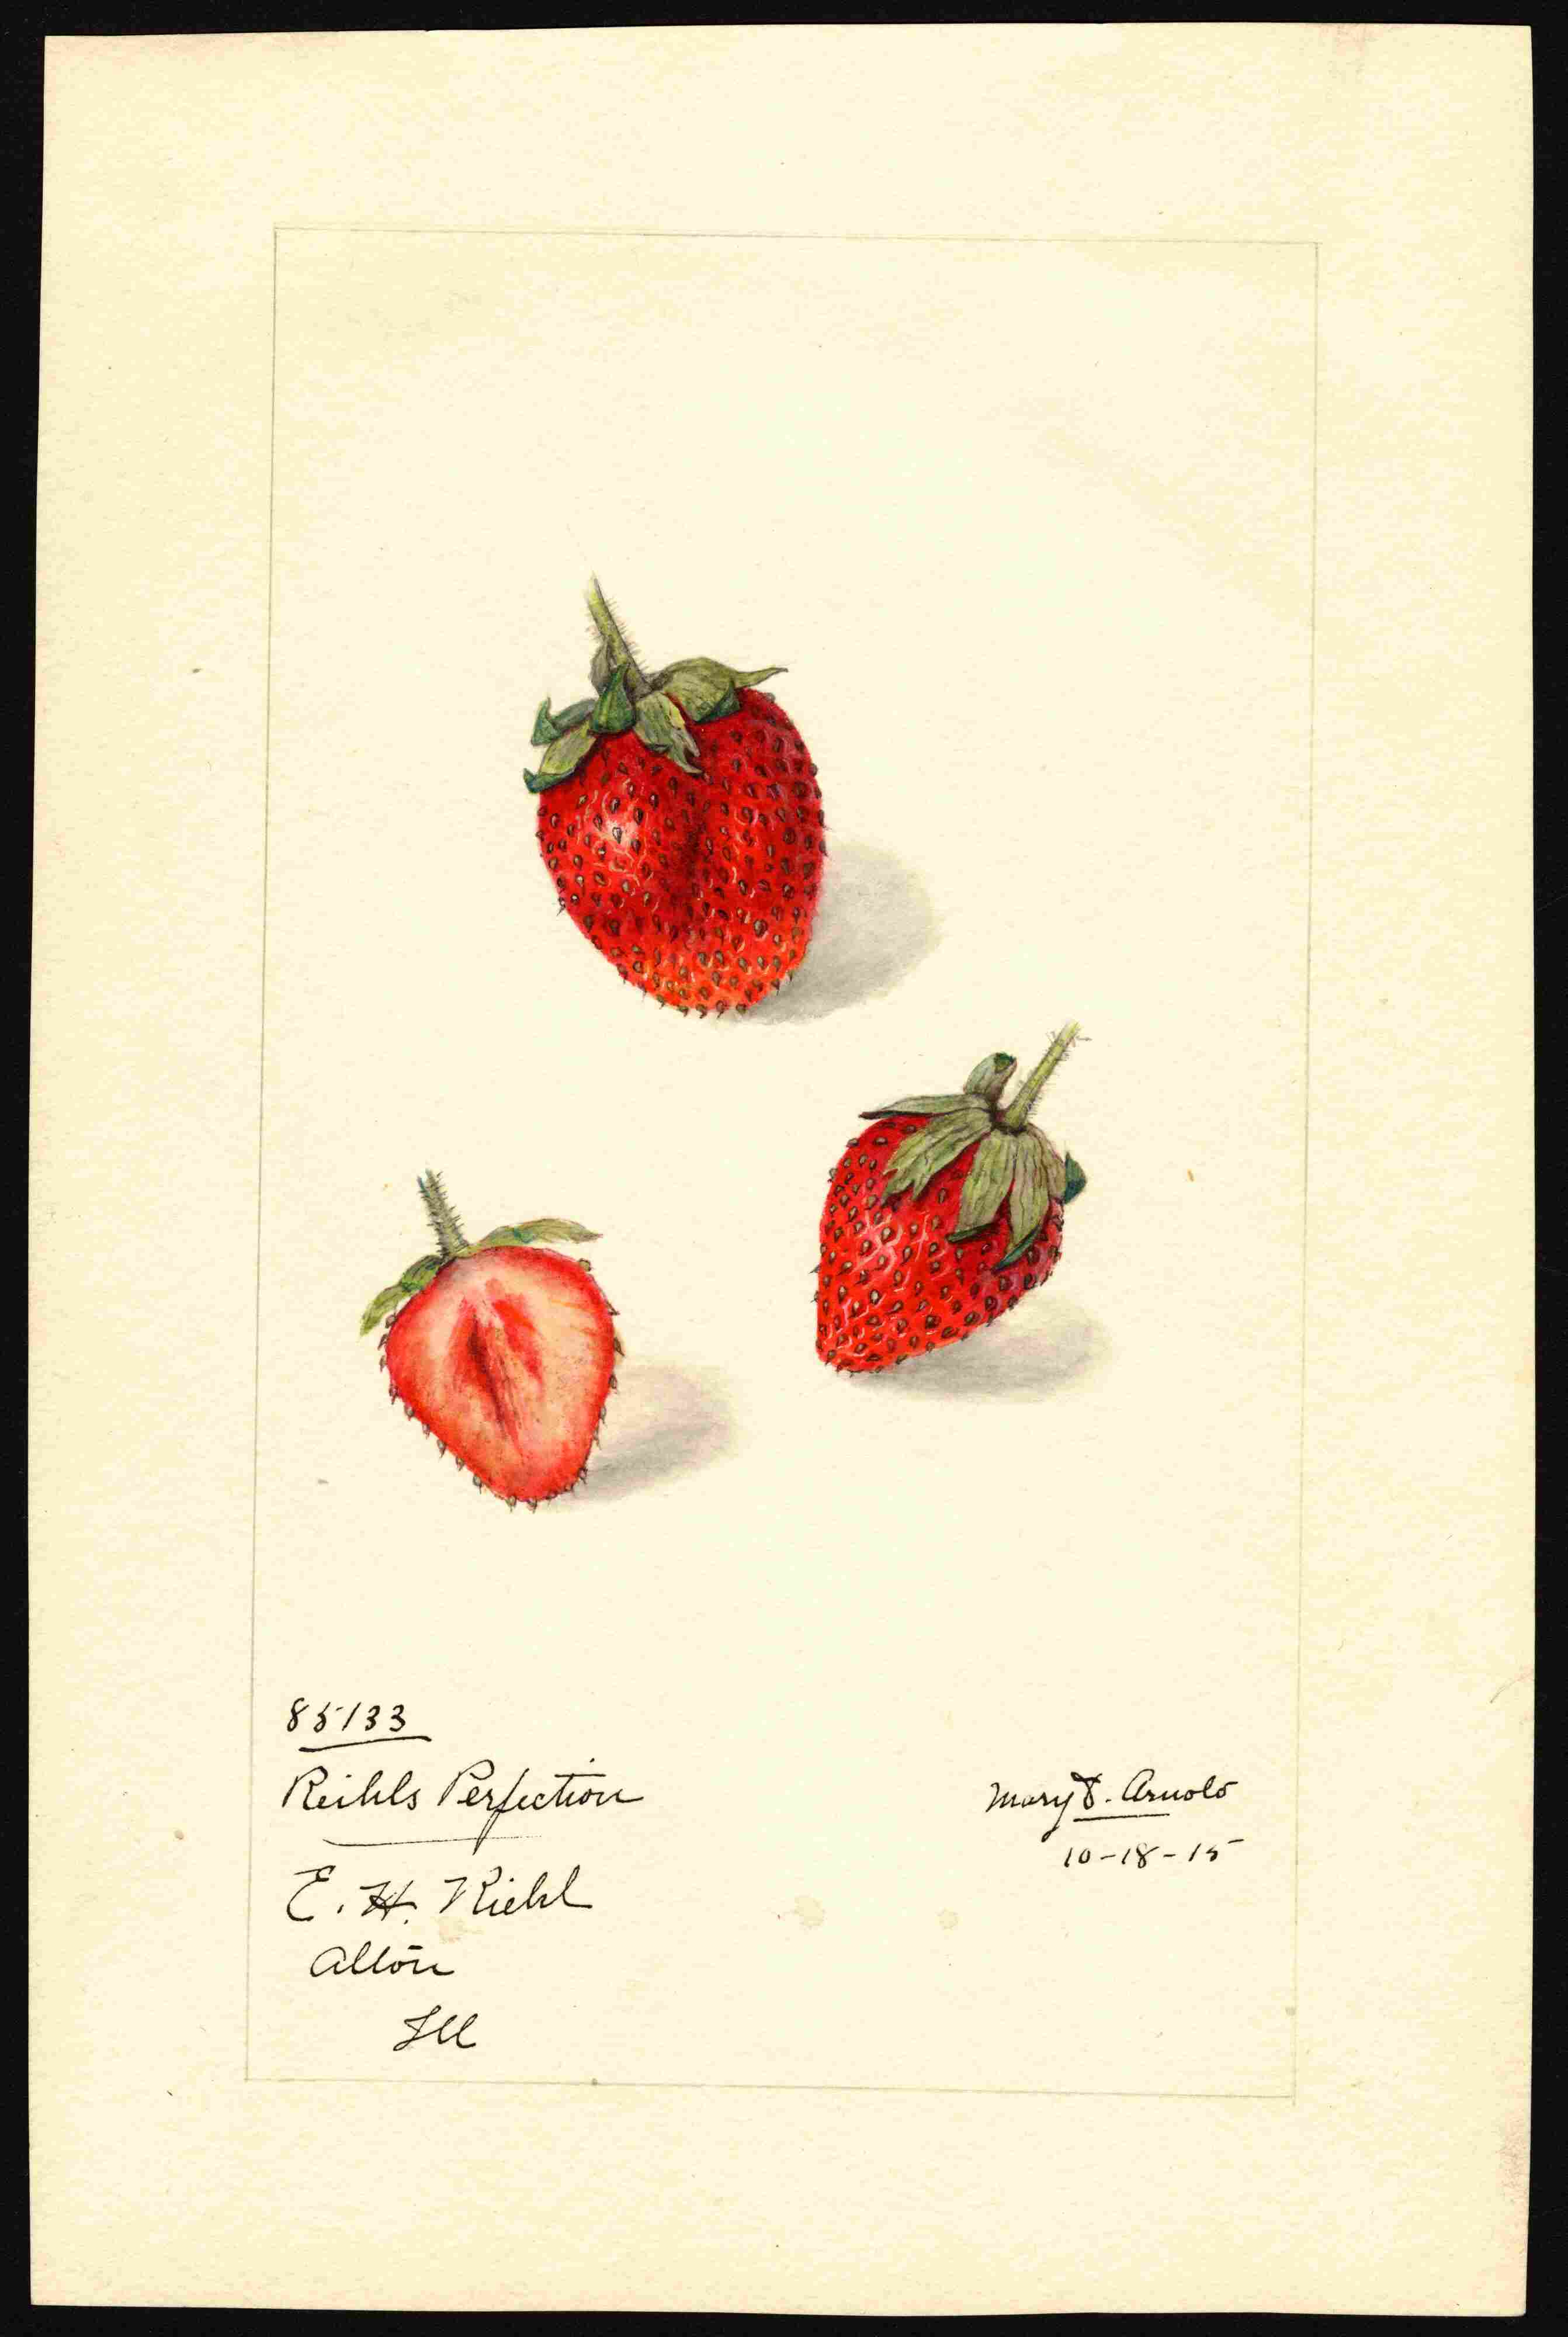 85133
Reihls Perfection
E. H. Riehl
Alton
Ill
Mary D. Arnold
10-18-15